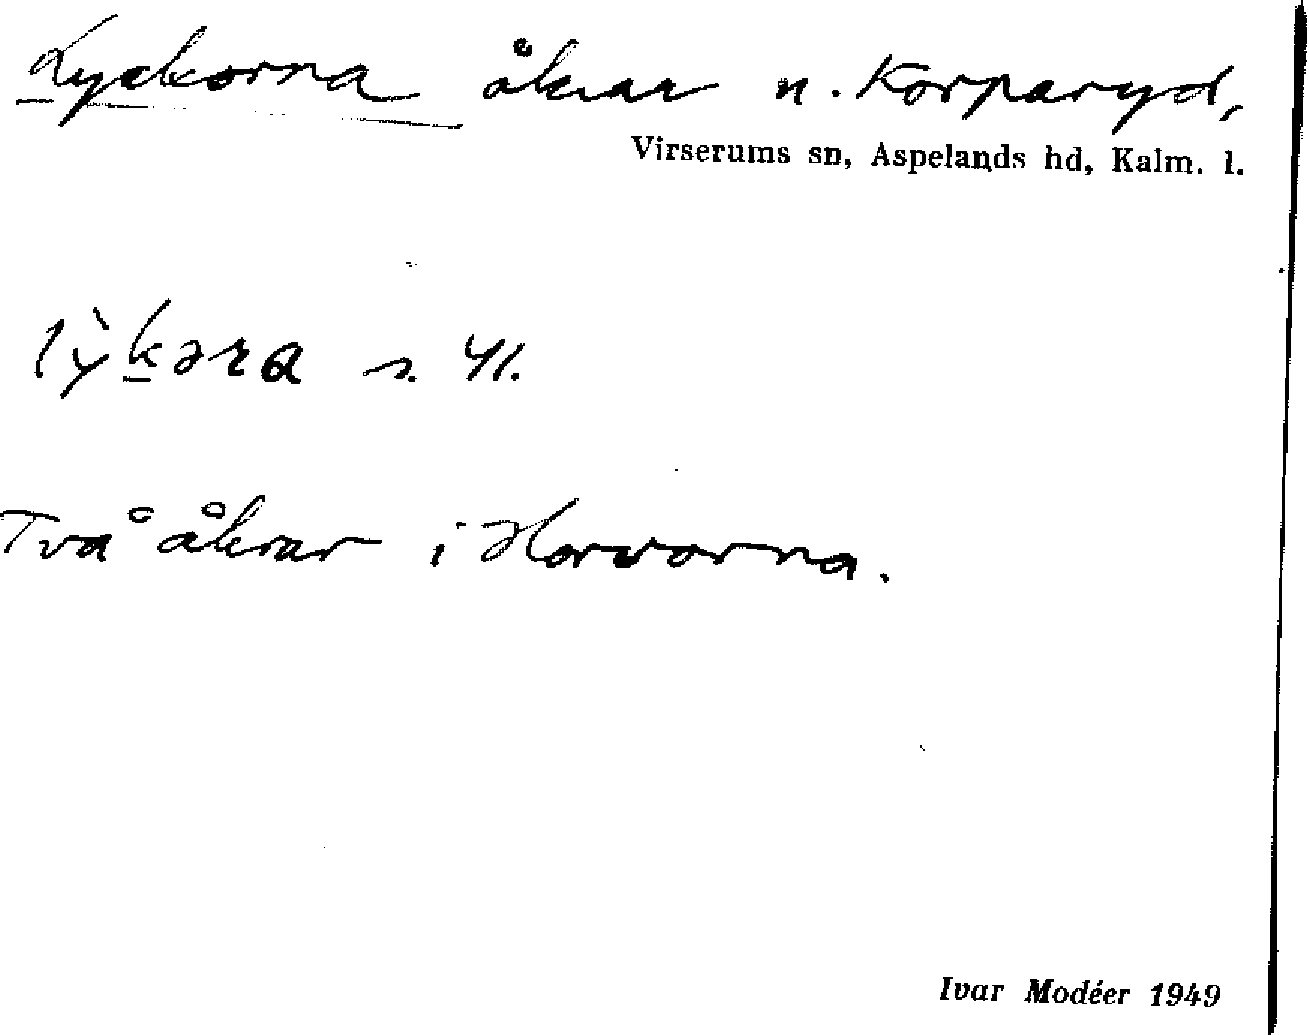 Lyckorna åkrar n. Korparyd,
Virserums sn, Aspelands hd, Kalm. l.
lỳkəra s. 41.
Två åkrar i Horvorna.
Ivar Modéer 1949